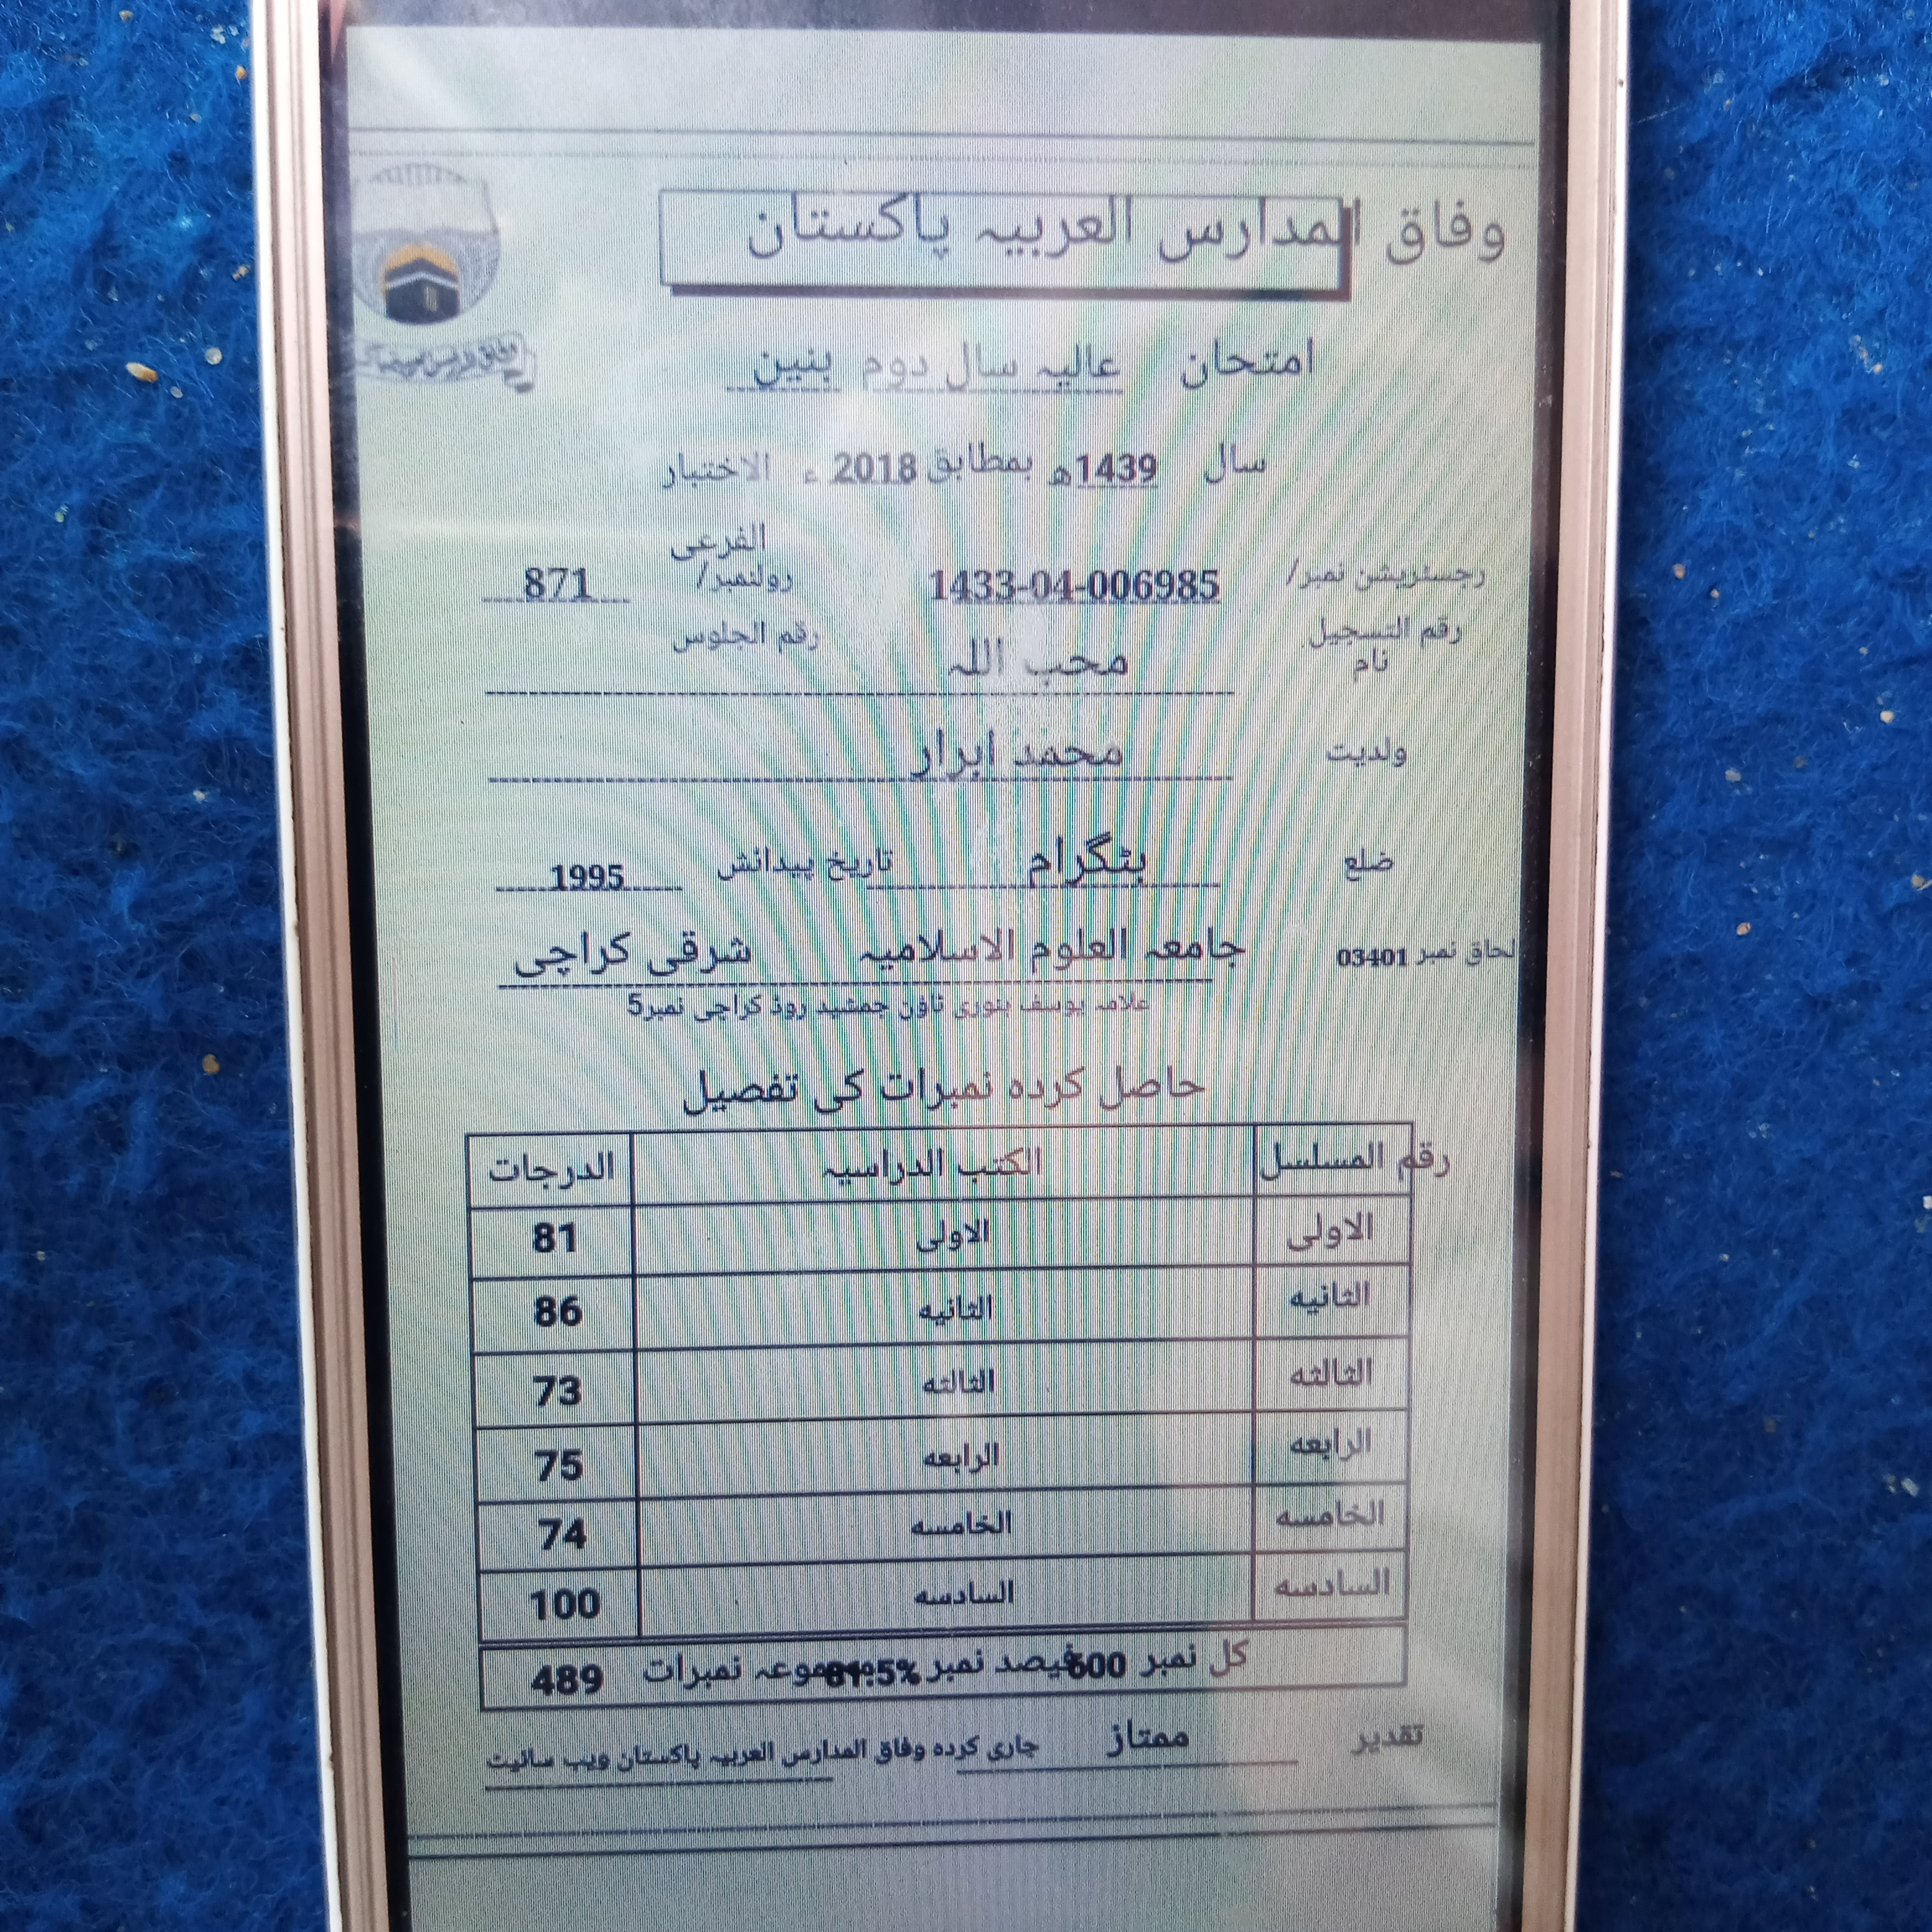 وفاق المدارس العربیہ پاکستان
امتحان عالیہ سال دوم بنین
سال 1439ھ بمطابق 2018 ء الاختبار
الفرعی
رجسٹریشن نمبر/ 1433-04-006985 رولنمبر/ 871
رقم التسجیل رقم الجلوس
نام محب اللہ
ولدیت محمد ابرار
ضلع بٹگرام تاریخ پیدائش 1995
لحاق نمبر 03401 جامعہ العلوم الاسلامیہ شرقی کراچی
علامہ یوسف بنوری ٹاؤن جمشید روڈ کراچی نمبر5
حاصل کردہ نمبرات کی تفصیل
رقم المسلسل الکتب الدراسیہ الدرجات
الاولی الاولی 81
الثانیه الثانیه 86
الثالثه الثالثه 73
الرابعه الرابعه 75
الخامسه الخامسه 74
السادسه السادسه 100
کل نمبر 600 فیصد نمبر 81.5% مجموعہ نمبرات 489
تقدیر ممتاز جاری کردہ وفاق المدارس العربیہ پاکستان ویب سائیٹ